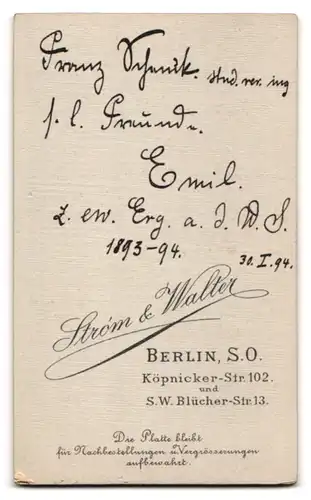 Franz Schenk. stud. rer. ing
s. l. Freunde.
Emil.
z. ew. Erg. a. d. W. S.
1893-94.
30. I. 94.
Ström & Walter
BERLIN, S.O.
Köpnicker-Str. 102.
und
S.W. Blücher-Str. 13.
Die Platte bleibt
für Nachbestellungen u. Vergrösserungen
aufbewahrt.